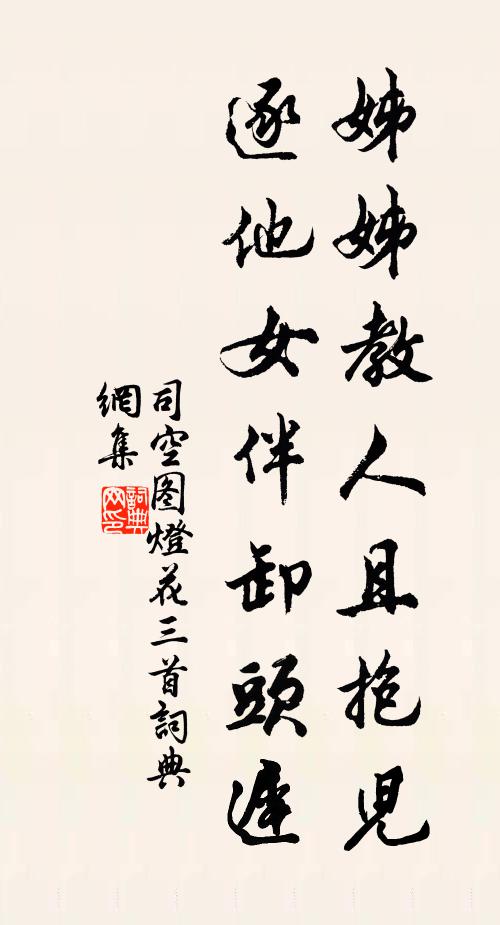 姊姊教人且抱兒
逐他女伴卸頭遲
司空图燈花三首詞典
網集
詞典
网印